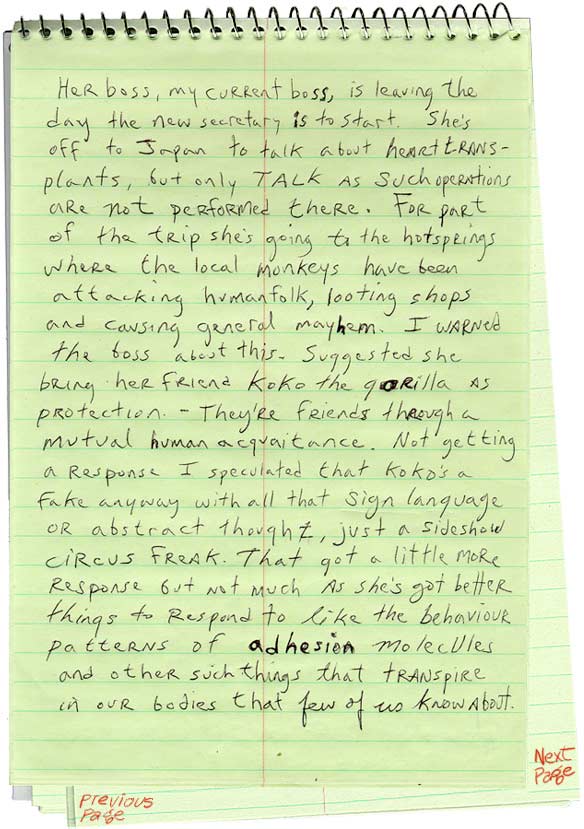 Her boss, my current boss, is leaving the
day the new secretary is to start. She's
off to Japan to talk about heart trans-
plants, but only TALK as such operations
are not performed there. For part
of the trip she's going to the hotsprings
where the local monkeys have been
attacking humanfolk, looting shops
and causing general mayhem. I warned
the boss about this. Suggested she
bring her friend Koko the gorilla as
protection. - They're friends through a
mutual human acquaitance. Not getting
a response I speculated that Koko's a
fake anyway with all that sign language
or abstract thought, just a sideshow
circus freak. That got a little more
response but not much as she's got better
things to respond to like the behaviour
patterns of adhesion molecules
and other such things that transpire
in our bodies that few of us know about.
Next
Page
Previous
Page